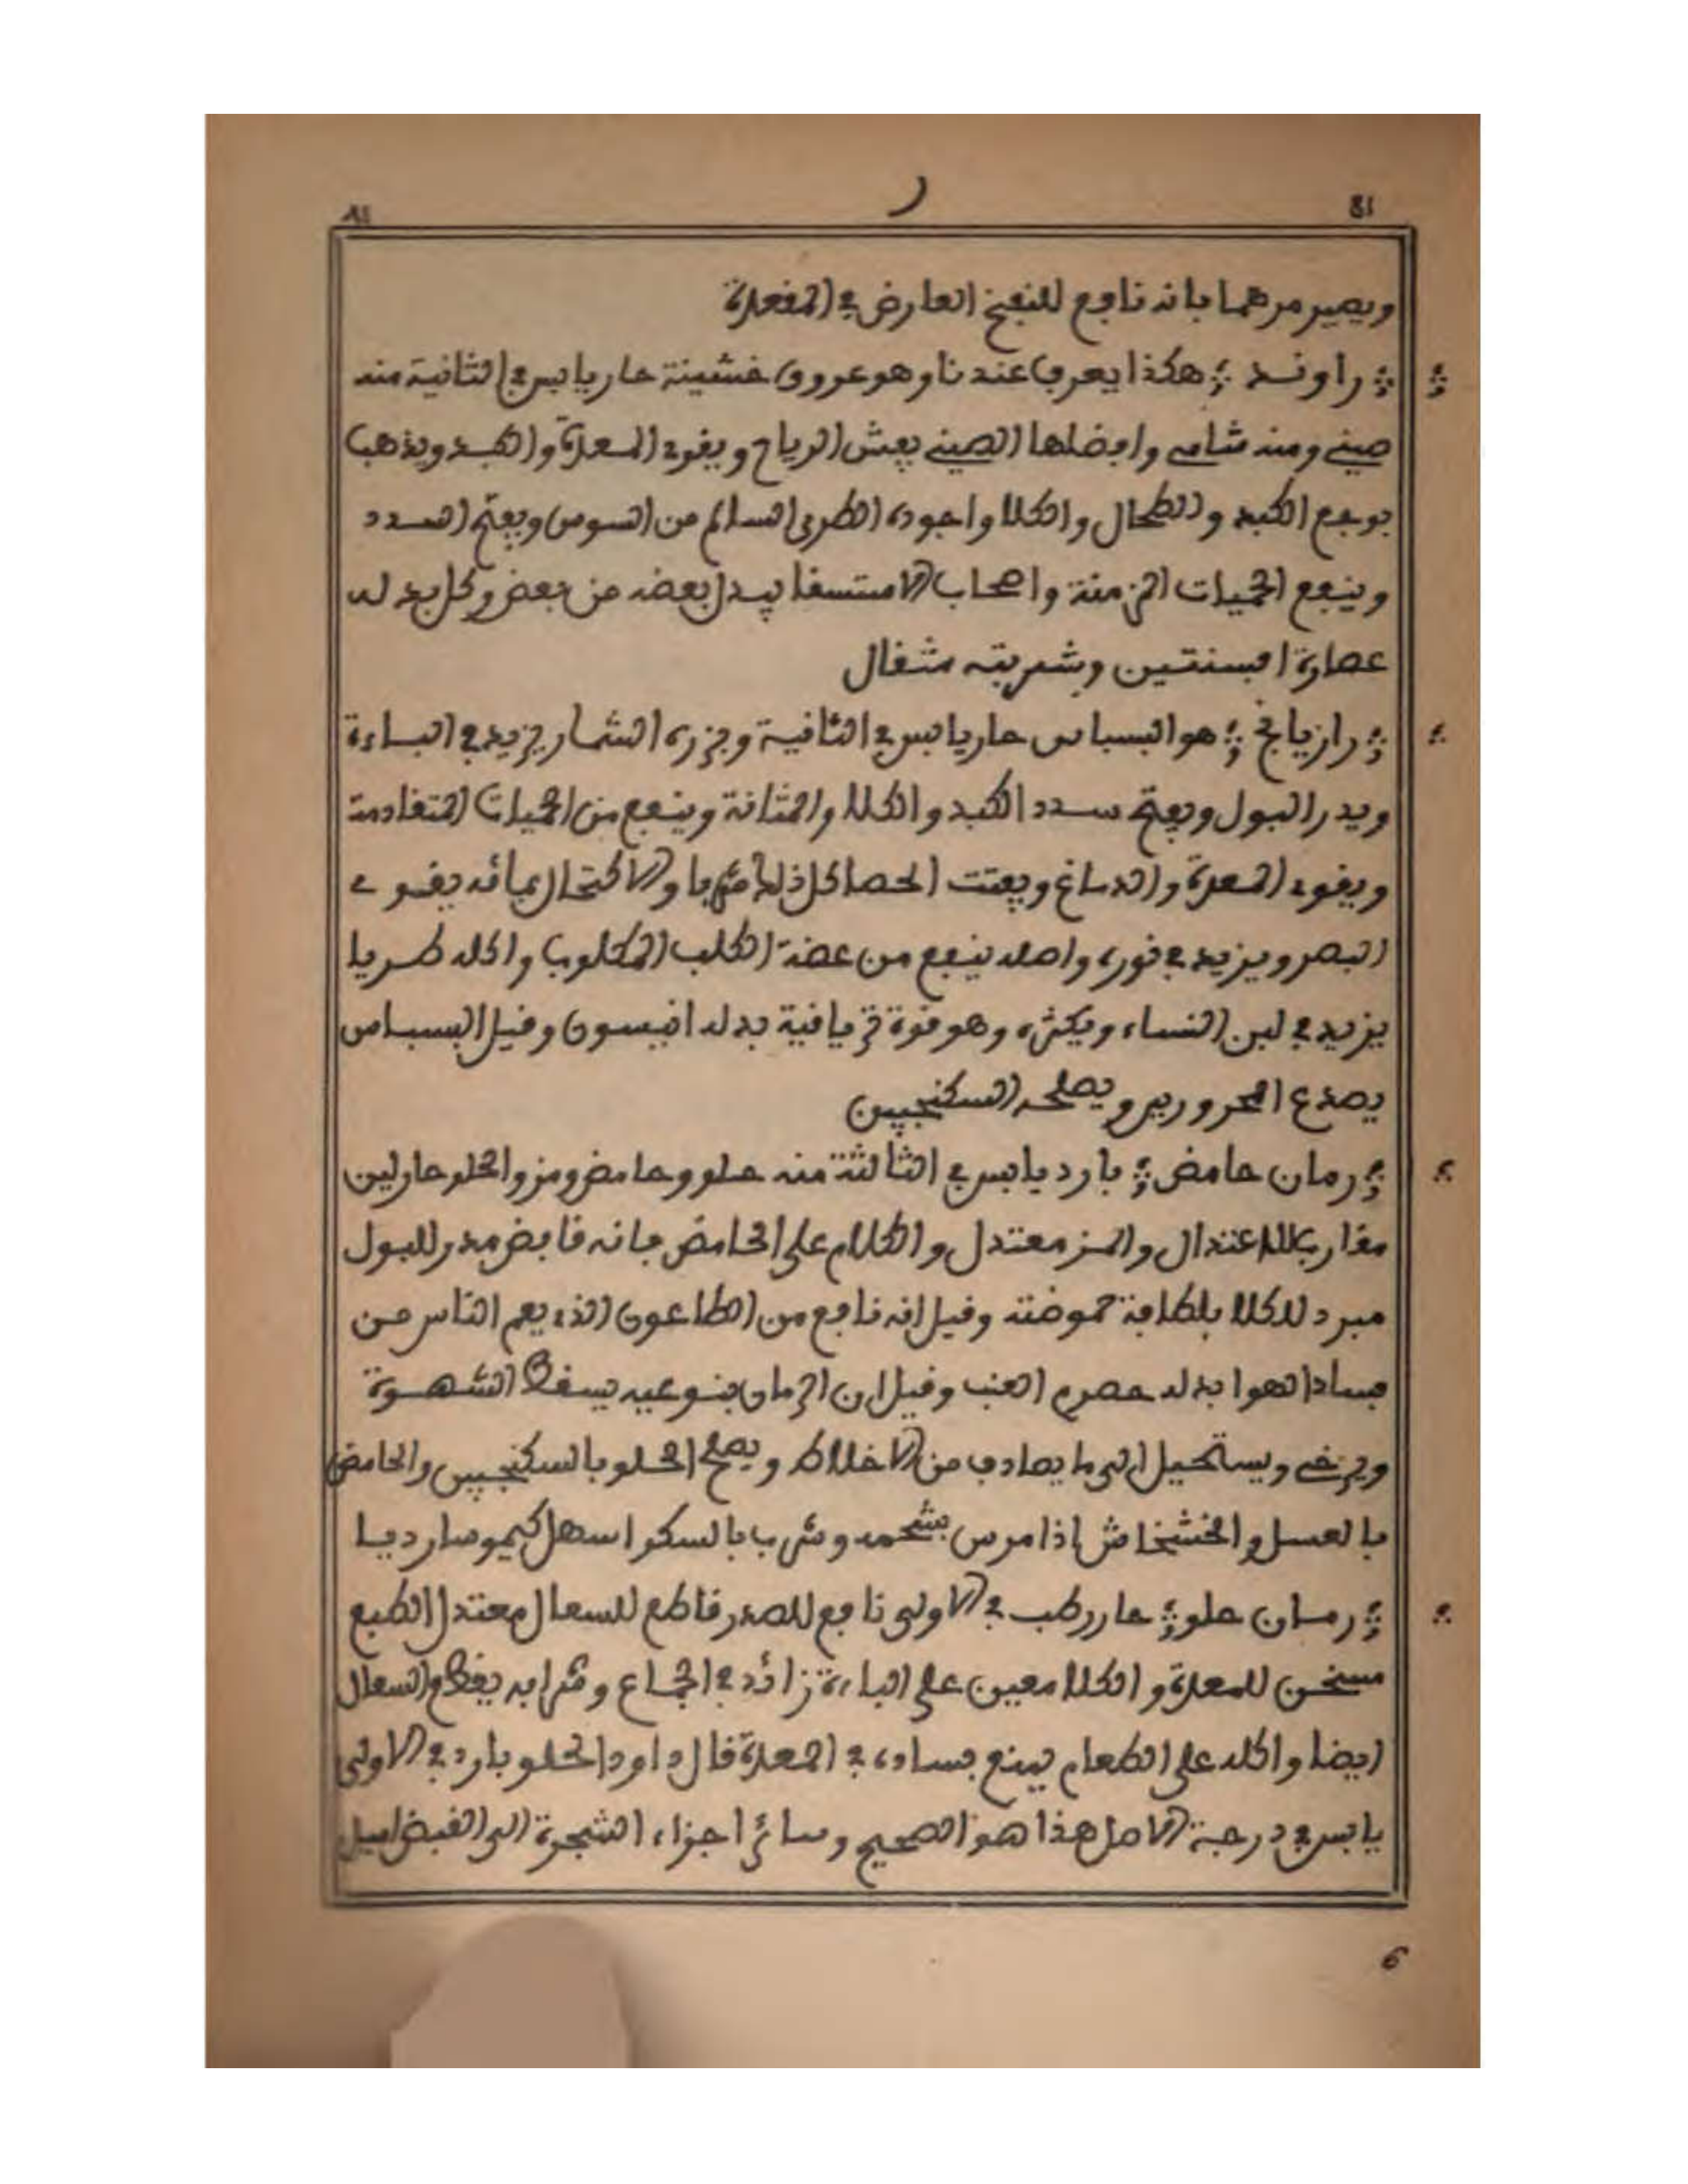 81 ر ٨١
ويصير مرهما فانه نافع للنفخ العارض في المفعدة
راوند هكذا يعرف عندنا وهو عروق خشينة حار يابس في الثانية منه
صيني ومنه شامي وافضلها الصيني يفش الرياح ويقوي المعدة والكبد ويذهب
بوجع الكبد والطحال والكلا واجوده الطري السالم من السوس ويفتح السدد
وينفع الحميات المزمنة واصحاب الاستسقا يبدل بعضه من بعض وكل بدله
عصارة افسنتين وشربته مثقال
رازيانج هو البسباس حار يابس في الثانية وبزره الشمار يزيد في الباءة
ويدر البول ويفتح سدد الكبد والكلا والمثانة وينفع من الحميات المتقادمة
ويقوي المعدة والدماغ ويفتت الحصا كل ذلك شربا والاكتحال بمائه يقوي
البصر ويزيد في نوره واصله ينفع من عضة الكلب المكلوب واكله طريا
يزيد في لبن النساء ويكثره وهو قوة ترياقية بدله انيسون وقيل البسباس
يصدع المحرورين ويصلحه السكنجبين
رمان حامض بارد يابس في الثالثة منه حلو وحامض ومز والحلو حار لين
مقارب للاعتدال والمز معتدل والكلام على الحامض فانه قابض مدر للبول
مبرد للكلا بلطافة حموضته وقيل انه نافع من الطاعون الذي يعم الناس من
فساد الهوا بدله حصرم العنب وقيل ان الرمان بنوعيه يسقط الشهوة
ويرخي ويستحيل الى ما يصادف من الاخلاط ويصلح الحلو بالسكنجبين والحامض
بالعسل والخشخاش اذا مرس بشحمه وشرب بالسكر اسهل كيموسا رديا
رمان حلو حار رطب في الاولى نافع للصدر قاطع للسعال معتدل الطبع
مسخن للمعدة والكلا معين على الباءة زائد في الجماع وشرابه يقطع السعال
ايضا واكله على الطعام يمنع فساده في المعدة قال داود الحلو بارد في الاولى
يابس في درجة الاصل هذا هو الصحيح وسائر اجزاء الشجرة الى القبض اميل
6